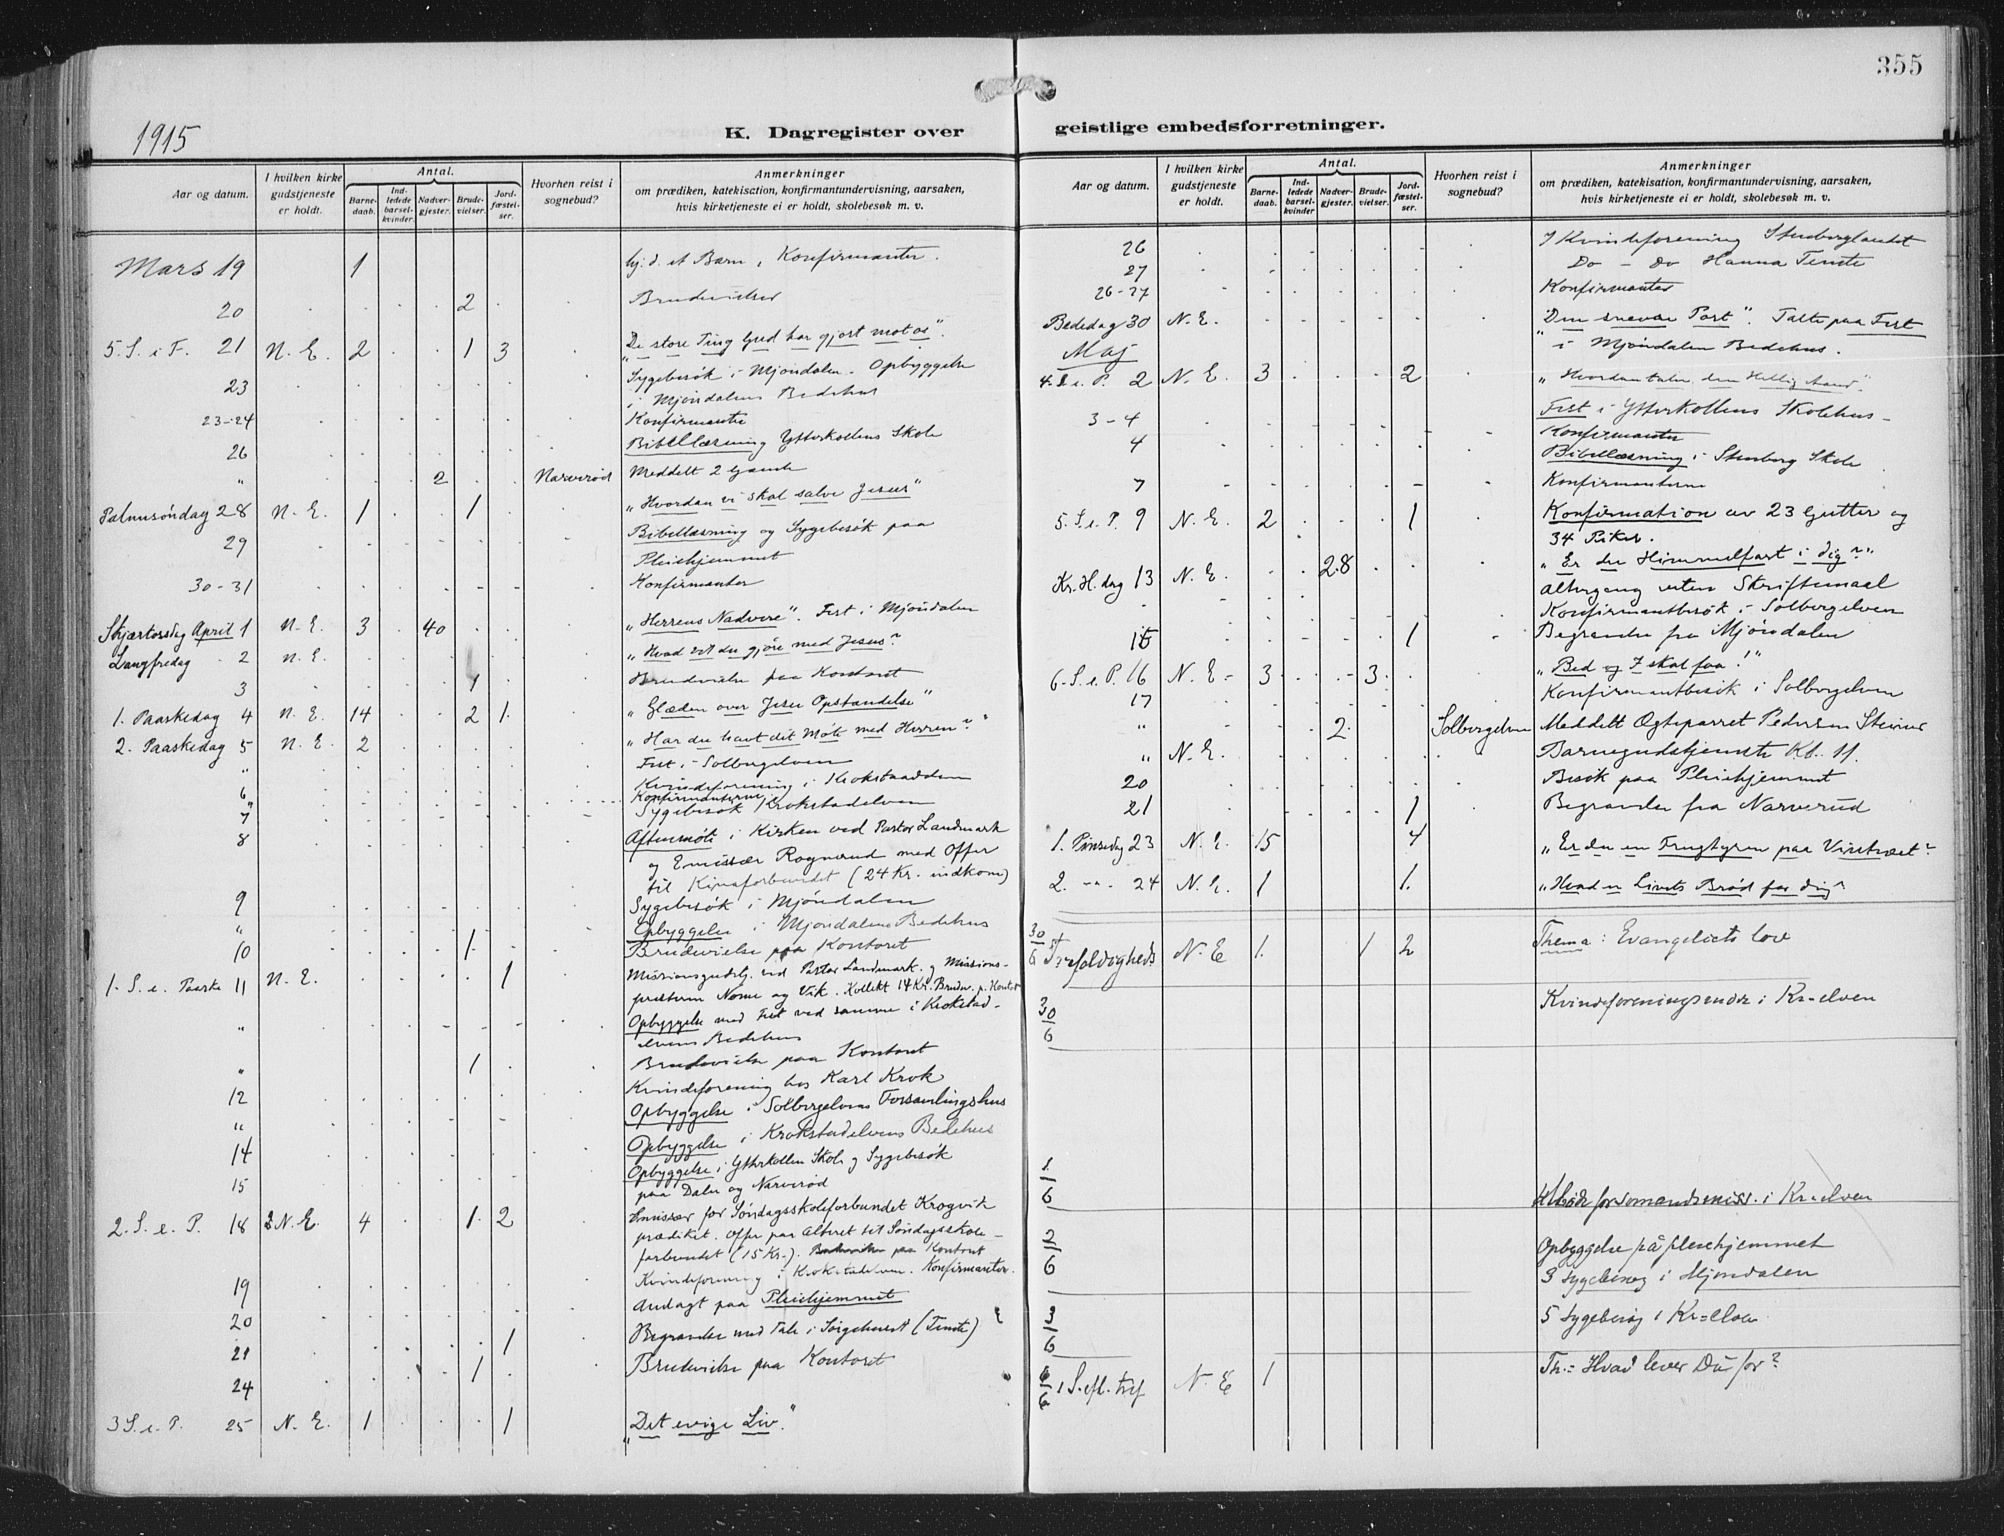 355
1915
K. Dagregister over geistlige embedsforretninger.
Aar og datum.
I hvilken kirke gudstjeneste er holdt.
Antal.
Barnedaab.
Indledede barselkvinder
Nadvergjester.
Brudevielser.
Jordfæstelser.
Hvorhen reist i sognebud?
Anmerkninger
om prædiken, katekisation, konfirmantundervisning, aarsaken,
hvis kirketjeneste ei er holdt, skolebesøk m. v.
Mars 19 1 hj. d. et Barn, Konfirmanter.
20 2 Brudevielser
5. S. i F. 21 N. E. 2 1 3 "De store Ting Gud har gjort mot os".
23 Sygebesøk i Mjøndalen. Opbyggelse
i Mjøndalens Bedehus
23-24 Konfirmanter
26 Bibellæsning Ytterkollens Skole
" 2 Narverød Meddelt 2 Gamle
Palmesøndag 28 N. E. 1 1 "Hvordan vi skal salve Jesus"
29 Bibellæsning og Sygebesøk paa
Pleiehjemmet
30-31 Konfirmanter
Skjærtorsdag April 1 N. E. 3 40 "Herrens Nadvere". Fest i Mjøndalen
Langfredag 2 N. E. "Hvad vil du gjøre med Jesus?
3 1 Brudevielse paa Kontoret
1. Paaskedag 4 N. E. 14 2 1. "Glæden over Jesu Opstandelse"
2. Paaskedag 5 N. E. 2 "Har du havt dit Møte med Herren?"
" Fest i Solbergelven
6 Kvindeforening i Krokstadelven
Konfirmanterne
7 Sygebesøk Krokstadelven
8 Aftenmøte i Kirken ved Pastor Landmark
og Emissær Rognerud med Offer
til Kinaforbundet (24 Kr. indkom)
9 Sygebesøk i Mjøndalen
" Opbyggelse i Mjøndalens Bedehus
10 1. Brudevielse paa Kontoret
1. S. e. Paaske 11 N. E. 1 Missionsgudstj. ved Pastor Landmark og Missions-
præsterne Nome og Vik. Kollekt 14 Kr. Brudev. p. Kontor
" Opbyggelse med Fest ved samme i Krokstad-
elvens Bedehus
" 1 Brudevielse paa Kontoret
12 Kvindeforening hos Karl Krok
" Opbyggelse i Solbergelvens Forsamlingshus
14 Opbyggelse i Krokstadelvens Bedehus
15 Opbyggelse i Ytterkollen Skole og Sygebesøk
paa Daler og Narverød
2. S. e. P. 18 N. E. 4 1. 2 Emissær for Søndagsskoleforbundet Krogvik
prædiket. Offer paa Alteret til Søndagsskole-
forbundet (15 Kr.). Brudevielse paa Kontoret
19 Kvindeforening i Krokstadelven. Konfirmanter.
20 Andagt paa Pleiehjemmet
21 1 Begravelse med Tale i Sørgehuset (Temte)
24 1 Brudevielse paa Kontoret
3 S. e. P. 25 N. E. 1 1 "Det evige Liv."
Aar og datum.
I hvilken kirke gudstjeneste er holdt.
Antal.
Barnedaab.
Indledede barselkvinder
Nadvergjester.
Brudevielser.
Jordfæstelser.
Hvorhen reist i sognebud?
Anmerkninger
om prædiken, katekisation, konfirmantundervisning, aarsaken,
hvis kirketjeneste ei er holdt, skolebesøk m. v.
26 I Kvindeforening Stenberglandet
27 Do - Do Hanna Temte
26-27 Konfirmanter
Bededag 30 N. E. "Den snevre Port". Talte paa Fest
Maj i Mjøndalen Bedehus.
4. S. e. P. 2 N. E. 3 2 "Hvordan taler den Hellig Aand".
3-4 Fest i Ytterkollens Skolehus-
Konfirmanter
4 Bibellæsning i Stenberg Skole
7 Konfirmanterne
5. S. e. P. 9 N. E. 2 1 Konfirmation av 23 Gutter og
34 Piker.
Kr. H. dag 13 N. E. 28 "Er der Himmelfart i dig?"
Altergang uten Skriftemaal
Konfirmantbesøk i Solbergelven
15 1 Begravelse fra Mjøndalen
6. S. e. P. 16 N. E. 3 3. "Bed og I skal faa!"
17 Konfirmantbesøk i Solbergelven
" 2. Solbergelven Meddelt Ægteparret Pedersen Steiner
" N. E. Barnegudstjeneste Kl. 11.
20 Besøk paa Pleiehjemmet
21 1 Begravelse fra Narverud
1. Pinsedag 23 N. E. 15 4 "Er du en Frugtgren paa Vintræet?
2. -"- 24 N. E. 1 1. "Hvad er Livets Brød for dig?
30/6 Trefoldigheds N. E 1. 1 2 Thema: Evangeliets lov
30/6 Kvindeforeningsmøde i Kr-elven
1/6 for sømandsmiss. i Kr-elven
2/6 Opbyggelse på pleiehjemmet
3 sygebesøg i Mjøndalen
3/6 5 Sygebesøg i Kr=elven
6/6 1 S. eft. tref N. E 1 Th.: Hvad lever Du for?